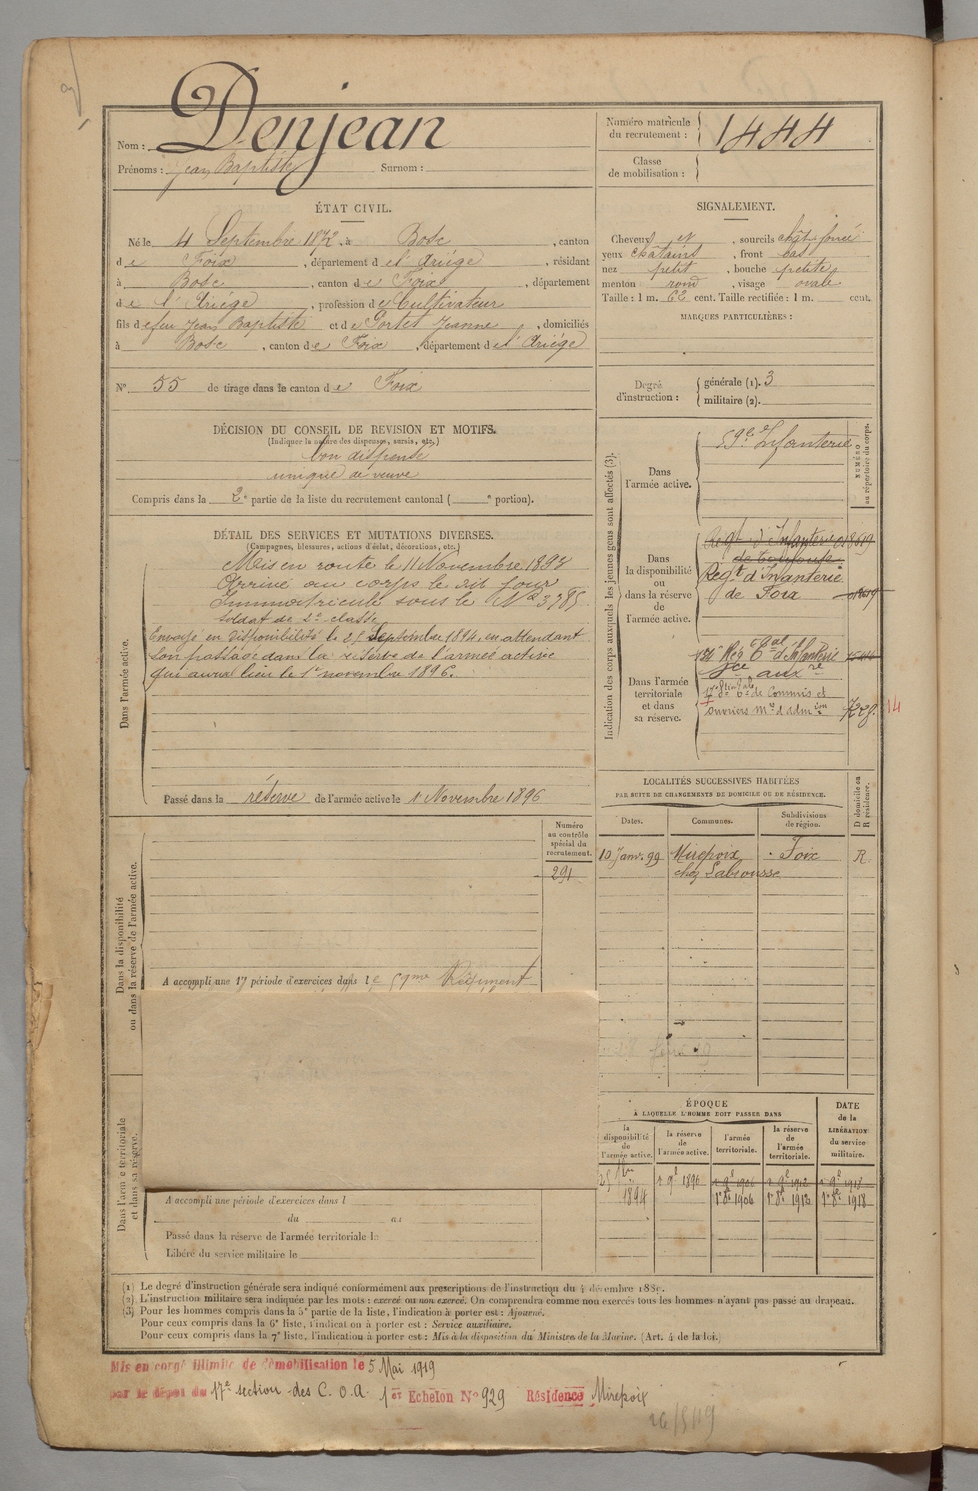 Nom : Denjean
Prénoms : Jean Baptiste Surnom :
Numéro matricule du recrutement : 1444
Classe de mobilisation :
ÉTAT CIVIL.
Né le 4 Septembre 1872, à Bosc, canton
de Foix, département de l'Ariège, résidant
à Bosc, canton de Foix, département
de l'Ariége, profession de Cultivateur
fils de feu Jean Baptiste et de Portes Jeanne, domiciliés
à Bosc, canton de Foix, département de l'Ariége
N° 55 de tirage dans le canton de Foix
SIGNALEMENT.
Cheveux et, sourcils chât. foncé
yeux châtains, front bas
nez petit, bouche petite
menton rond, visage ovale
Taille : 1 m. 62 cent. Taille rectifiée : 1 m. cent.
MARQUES PARTICULIÈRES :
Degré d'instruction : générale (1). 3
militaire (2).
DÉCISION DU CONSEIL DE REVISION ET MOTIFS.
(Indiquer la nature des dispenses, sursis, etc.)
bon dispensé
unique de veuve
Compris dans la 2e partie de la liste du recrutement cantonal ( e portion).
DÉTAIL DES SERVICES ET MUTATIONS DIVERSES.
(Campagnes, blessures, actions d'éclat, décorations, etc.)
Dans l'armée active.
Mis en route le 11 Novembre 1894
Arrivé au corps le dit jour
Immatriculé sous le N° 3785
Soldat de 2e classe
Envoyé en disponibilité le 25 Septembre 1894, en attendant
son passage dans la réserve de l'armée active
qui aura lieu le 1er novembre 1896.
Passé dans la réserve de l'armée active le 1 Novembre 1896
Indication des corps auxquels les jeunes gens sont affectés (3).
NUMÉRO au répertoire du corps.
Dans l'armée active.
59e d'Infanterie
Dans la disponibilité ou dans la réserve de l'armée active.
Regt d'Infanterie 018619
de Toulouse
Regt d'Infanterie
de Foix 018619
Dans l'armée territoriale et dans sa réserve.
135 Rég. tal d'Infanterie
Sce auxre
17e son tale de Commis et
ouvriers mre d'admion 14
LOCALITÉS SUCCESSIVES HABITÉES
PAR SUITE DE CHANGEMENTS DE DOMICILE OU DE RÉSIDENCE.
Dates. Communes. Subdivisions de région. D domicile ou R résidence.
10 Janv. 99 Mirepoix Foix R
chez Labrousse
Numéro au contrôle spécial du recrutement.
291
Dans la disponibilité ou dans la réserve de l'armée active.
A accompli une 1re période d'exercices dans le 59me Régiment
Dans l'armée territoriale et dans sa réserve.
A accompli une période d'exercices dans l
du au
Passé dans la réserve de l'armée territoriale le
Libéré du service militaire le
ÉPOQUE
À LAQUELLE L'HOMME DOIT PASSER DANS
DATE de la LIBÉRATION du service militaire.
la disponibilité de l'armée active. la réserve de l'armée active. l'armée territoriale. la réserve de l'armée territoriale.
25 7bre 1894 1er 9e 1896 1er 9e 1906 1er 9e 1912 1er 9e 1918
1er 8e 1906 1er 8e 1912 1er 8e 1918
(1) Le degré d'instruction générale sera indiqué conformément aux prescriptions de l'instruction du 4 décembre 1889.
(2) L'instruction militaire sera indiquée par les mots : exercé ou non exercé. On comprendra comme non exercés tous les hommes n'ayant pas passé au drapeau.
(3) Pour les hommes compris dans la 5e partie de la liste, l'indication à porter est : Ajourné.
Pour ceux compris dans la 6e liste, l'indication à porter est : Service auxiliaire.
Pour ceux compris dans la 7e liste, l'indication à porter est : Mis à la disposition du Ministre de la Marine. (Art. 4 de la loi.)
Mis en congé illimité de démobilisation le 5 Mai 1919
par le dépot du 17e section des C. O. A. 1er Echelon N° 929 Résidence Mirepoix